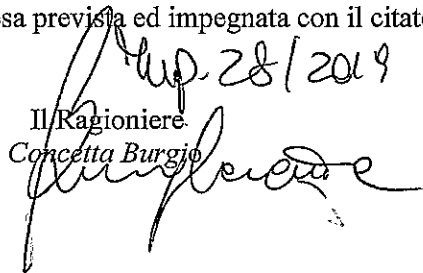 sa prevista ed impegnata con il citat
Imp. 28/2019
Il Ragioniere
Concetta Burgio